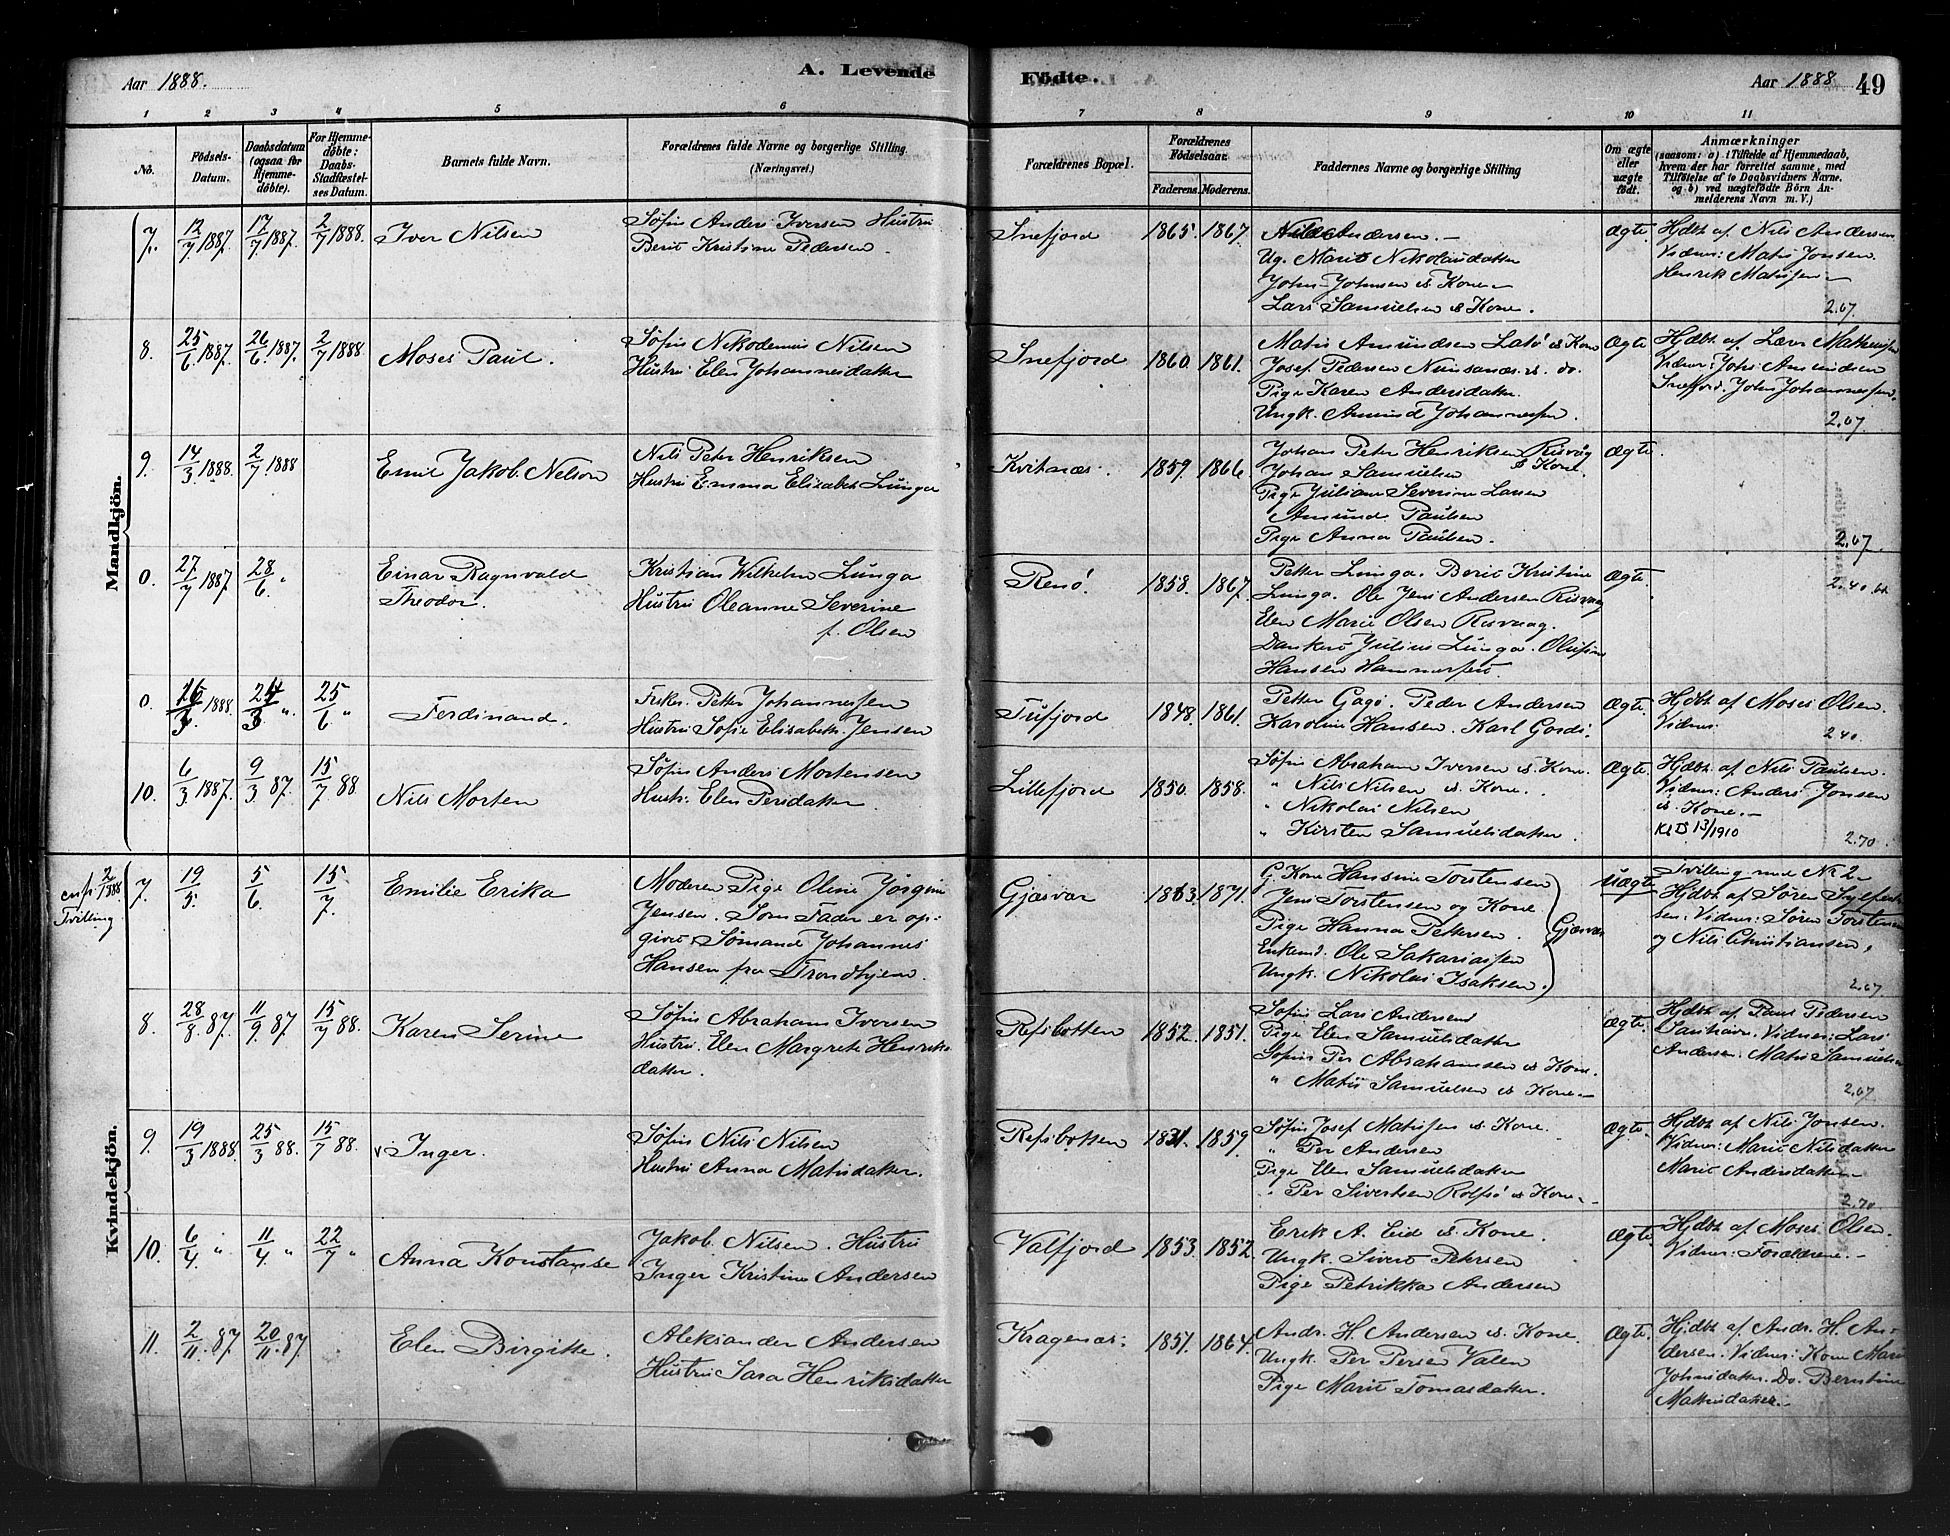 Aar 1888.
A. Levende
Fødte.
Aar 1888
49
1 2 3 4 5 6 7 8 9 10 11
No.
Födsels-
Datum.
Daabsdatum
(ogsaa for
Hjemme-
döbte).
For Hjemme-
döbte:
Daabs-
Stadfæstel-
ses Datum.
Barnets fulde Navn.
Forældrenes fulde Navne og borgerlige Stilling
(Næringsvei.)
Forældrenes Bopæl.
Forældrenes
Födselsaar.
Faderens. Moderens.
Faddernes Navne og borgerlige Stilling
Om ægte
eller
uægte
födt.
Anmærkninger
(saasom: a) i Tilfælde af Hjemmedaab,
hvem der har forrettet samme, med
Tilföielse af to Daabsvidners Navne.
og b) ved uægtefödte Börn An-
melderens Navn m. V.)
Mandkjön.
7. 12/7 1887. 17/7 1887. 2/7 1888. Iver Nilsen
Søfin Anders Iversen Hustru
Berit Kristine Pedersen
Snefjord 1865. 1867.
Nils Andersen.
Ug. Marit Nikolausdatter
John Johnsen & Kone
Lars Samuelsen & Kone.
Ægte.
Hjdbt af Nils Andersen
Vidner: Matis Jonsen
Henrik Matisen
2.67.
8. 25/6 1887. 26/6 1887. 2/7 1888 Moses Paul.
Søfin Nikodemus Nilsen
Hustru Elen Johannesdatter
Snefjord 1860. 1861.
Matis Amundsen Latö & Kone
Josef Pedersen Nunsanæs & do.
Pige Karen Andersdatter.
Ungk. Amund Johannessen.
Ægte
Hjdbt af Lærer Mathisen
Vidner: John Amundsen
Snefjord. John Johannessen.
2.67.
9. 14/3 1888. 2/7 1888 Emil Jakob Nelson
Nils Peter Henriksen
Hustru Emma Elisabet Lunga
Kvitnæs. 1859. 1866.
Johan Peter Henriksen Risvåg
& Kone.
Johan Samuelsen
Pige Juliane Severine Larsen
Amund Paulsen
Pige Anna Paulsen.
Ægte.
2.67.
0. 27/7 1887 28/6 " Einar Ragnvald
Theodor.
Kristian Wilhelm Lunga
Hustru Oleanne Severine
f. Olsen
Renö. 1858. 1867.
Petter Lunga. Berit Kristine
Lunga. Ole Jens Andersen Risvaag
Elen Marie Olsen Risvaag.
Dankert Julius Lunga. Olufine
Hansen Hammerfest
Ægte.
2.40 bt.
0. 1888. 24/3 " 25/6 " Ferdinand.
Fisker Petter Johannessen
Hustru Sofie Elisabeth Jensen
Tufjord 1848. 1861.
Petter Gagö. Peder Andersen
Karoline Hansen. Karl Gordi.
Ægte.
Hjdbt af Moses Olsen.
Vidner:
2.40.
10. 6/3 1887. 9/3 87. 15/7 88 Nils Morten
Søfin Anders Mortensen
Hustr: Elen Persdatter.
Lillefjord 1850. 1858.
Søfin Abraham Iversen & Kone.
" Nils Nilsen & Kone.
" Nikolai Nilsen
" Kirsten Samuelsdatter.
Ægte.
Hjdbt. af Nils Paulsen.
Vidner: Anders Jonsen
& Kone.
Kl D 13/1910
2.70.
Kvindekjön.
Tvilling
7. 19/5 5/6 15/7 Emilie Erika
Moderen Pige Oline Jörgine
Jensen. Som Fader er op-
givet Sömand Johannes
Hansen fra Trondhjem.
Gjæsvær 1863. 1871.
G. Kone Hansine Torstensen
Jens Torstensen og Kone
Pige Hanna Pettersen.
Enkemd. Ole Sakariassen
Ungk. Nikolai Isaksen.
Gjæsvær
Uægte
Tvilling med Nr 2
Hjdbt af Søren Sylfest-
sen. Vidner: Søren Torstensen
og Nils Christiansen.
2.67.
8. 28/8 87. 11/9 87 15/7 88. Karen Serine
Søfin Abraham Iversen
Hustru. Elen Margrete Henriks
datter.
Refsbotten 1852. 1851.
Søfin Lars Andersen
Pige Elen Samuelsdatter
Søfin Per Abrahamsen & Kone.
" Matis Samuelsen & Kone
Ægte.
Hjdbt af Paul Pedersen
Sanhavn. Vidner: Lars
Andersen. Matis Samuelsen
2.67
9. 19/3 1888. 25/3 88. 15/7 88. Inger.
Søfin Nils Nilsen
Hustru Anna Matisdatter.
Refsbotten 1859.
Søfin Josef Matisen & Kone.
" Per Andersen
Pige Elen Samuelsdatter
" Per Sivertsen Rolfsö & Kone
Ægte.
Hjdbt af Nils Jonsen.
Vidner: Marit Nilsdatter
Marit Andersdatter
2.70.
10. 6/4 " 11/4 " 22/7 " Anna Konstanse
Jakob Nilsen. Hustru
Inger Kristine Andersen
Valfjord 1853. 1852.
Erik A. Eid & Kone.
Ungk. Sivert Petersen
Pige Petrikka Andersen
Ægte.
Hjdbt af Moses Olsen.
Vidner: Forældrene.
11. 2/11 87 20/11 87 Elen Birgitte.
Aleksander Andersen
Hustru Sara Henriksdatter
Kragenæs. 1857. 1864.
Andr. H. Andersen & Kone.
Ungk. Per Persen Valen
Pige Marit Tomasdatter.
Ægte.
Hjdbt af Andr. H. An-
dersen. Vidner: Kone Marit
Johnsdatter. Do. Berntine
Mathisdatter